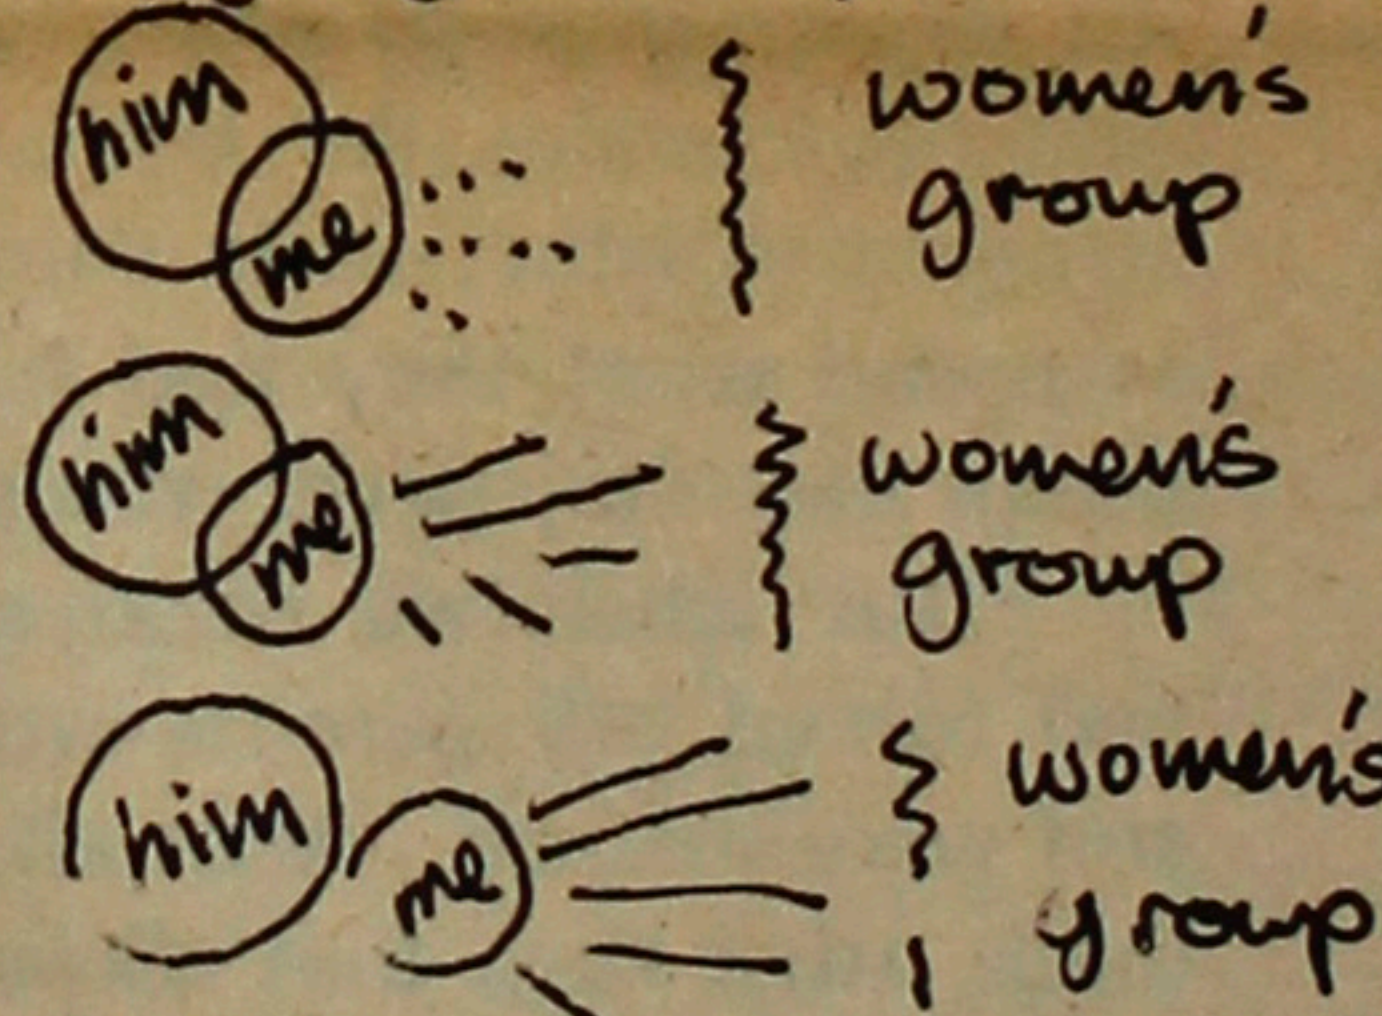 him
me
women's
group
him
me
women's
group
him
me
women's
group